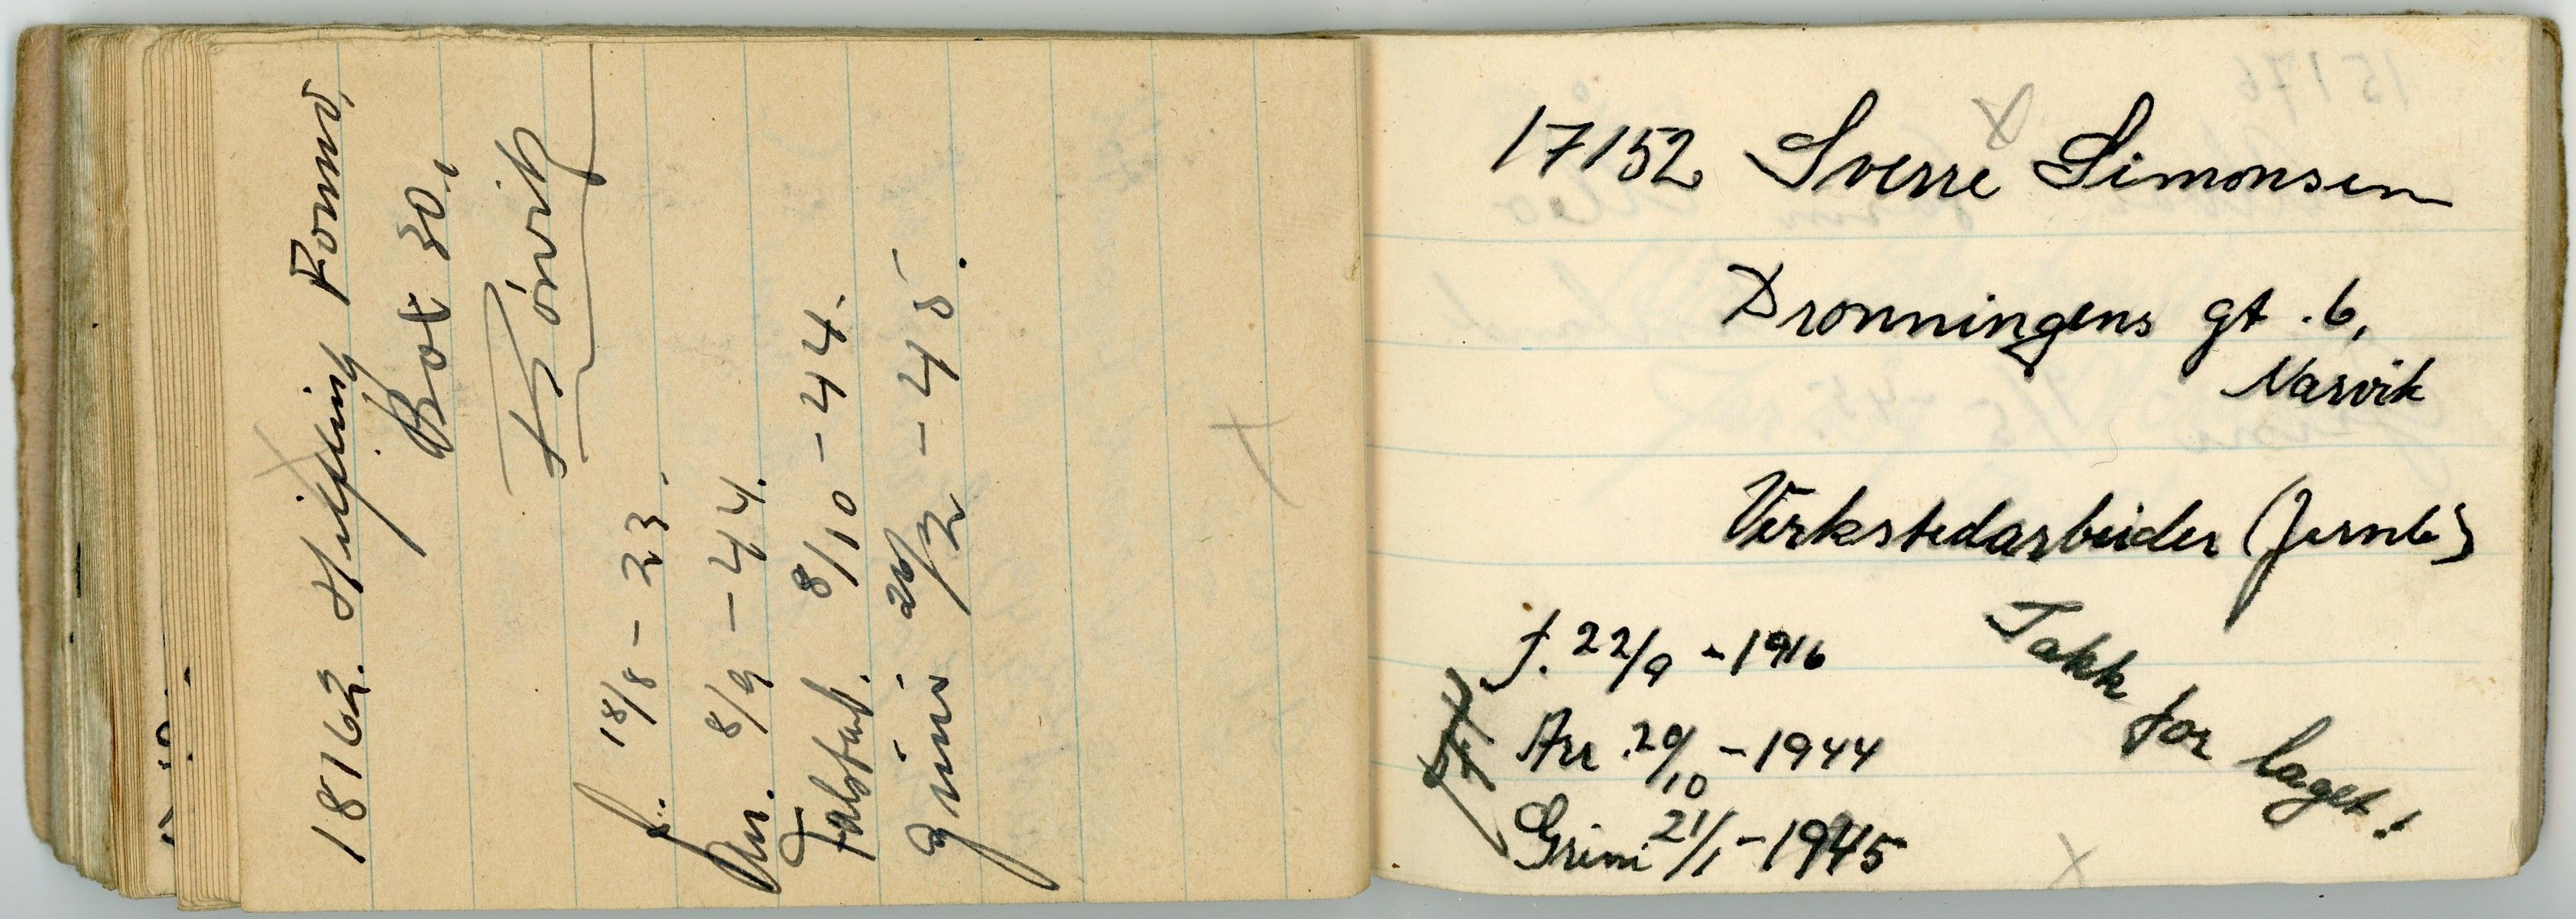 18162. Hifling Formo,
Box 30,
Rörvik
f. 18/8 – 23.
Arr. 8/9 – 44.
Falstad. 8/10 – 44.
Grini 20/2 – 45.
17152 Sverre Simonsen
Dronningens gt. 6,
Narvik
Verkstedarbeider (Jernb)
f. 22/9 - 1916
Arr. 29/10 - 1944
Grini 21/1 - 1945
Takk for laget!